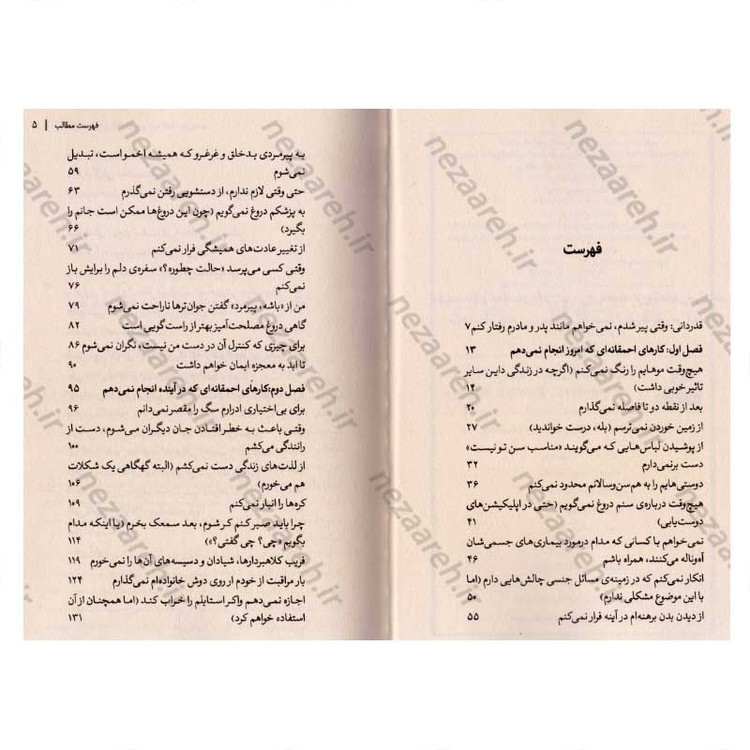 فهرست
قدردانی: وقتی پیر شدم، نمی‌خواهم مانند پدر و مادرم رفتار کنم ۷
فصل اول: کارهای احمقانه‌ای که امروز انجام نمی‌دهم ۱۳
هیچ‌وقت موهایم را رنگ نمی‌کنم (اگرچه در زندگی داین سایر
تاثیر خوبی داشت) ۱۴
بعد از نقطه دو تا فاصله نمی‌گذارم ۲۰
از زمین خوردن نمی‌ترسم (بله، درست خواندید) ۲۷
از پوشیدن لباس‌هایی که می‌گویند «مناسب سن تو نیست»
دست برنمی‌دارم ۳۲
دوستی‌هایم را به هم‌سن‌وسالانم محدود نمی‌کنم ۳۶
هیچ‌وقت درباره‌ی سنم دروغ نمی‌گویم (حتی در اپلیکیشن‌های
دوست‌یابی) ۴۱
نمی‌خواهم با کسانی که مدام درمورد بیماری‌های جسمی‌شان
آه‌وناله می‌کنند، همراه باشم ۴۶
انکار نمی‌کنم که در زمینه‌ی مسائل جنسی چالش‌هایی دارم (اما
با این موضوع مشکلی ندارم) ۵۰
از دیدن بدن برهنه‌ام در آینه فرار نمی‌کنم ۵۵
فهرست مطالب | ۵
به پیرمردی بدخلق و غرغرو که همیشه اخمو است، تبدیل
نمی‌شوم ۵۹
حتی وقتی لازم ندارم، از دستشویی رفتن نمی‌گذرم ۶۳
به پزشکم دروغ نمی‌گویم (چون این دروغ‌ها ممکن است جانم را
بگیرد) ۶۶
از تغییر عادت‌های همیشگی فرار نمی‌کنم ۷۱
وقتی کسی می‌پرسد «حالت چطوره؟» سفره‌ی دلم را برایش باز
نمی‌کنم ۷۶
من از «باشه، پیرمرد» گفتن جوان‌ترها ناراحت نمی‌شوم ۷۹
گاهی دروغ مصلحت‌آمیز بهتر از راست‌گویی است ۸۲
برای چیزی که کنترل آن در دست من نیست، نگران نمی‌شوم ۸۶
تا ابد به معجزه ایمان خواهم داشت ۹۰
فصل دوم: کارهای احمقانه‌ای که در آینده انجام نمی‌دهم ۹۵
برای بی‌اختیاری ادرارم سگ را مقصر نمی‌دانم ۹۶
وقتی باعث به خطر افتادن جان دیگران می‌شوم، دست از
رانندگی می‌کشم ۱۰۰
از لذت‌های زندگی دست نمی‌کشم (البته گهگاهی یک شکلات
هم می‌خورم) ۱۰۶
کره‌ها را انبار نمی‌کنم ۱۰۹
چرا باید صبر کنم کر شوم، بعد سمعک بخرم (یا اینکه مدام
بگویم «چی؟ چی گفتی؟») ۱۱۴
فریب کلاهبردارها، شیادان و دسیسه‌های آن‌ها را نمی‌خورم ۱۱۹
بار مراقبت از خودم را روی دوش خانواده‌ام نمی‌گذارم ۱۲۴
اجازه نمی‌دهم واکر استایلم را خراب کند (اما همچنان از آن
استفاده خواهم کرد) ۱۳۱
nezaareh.ir